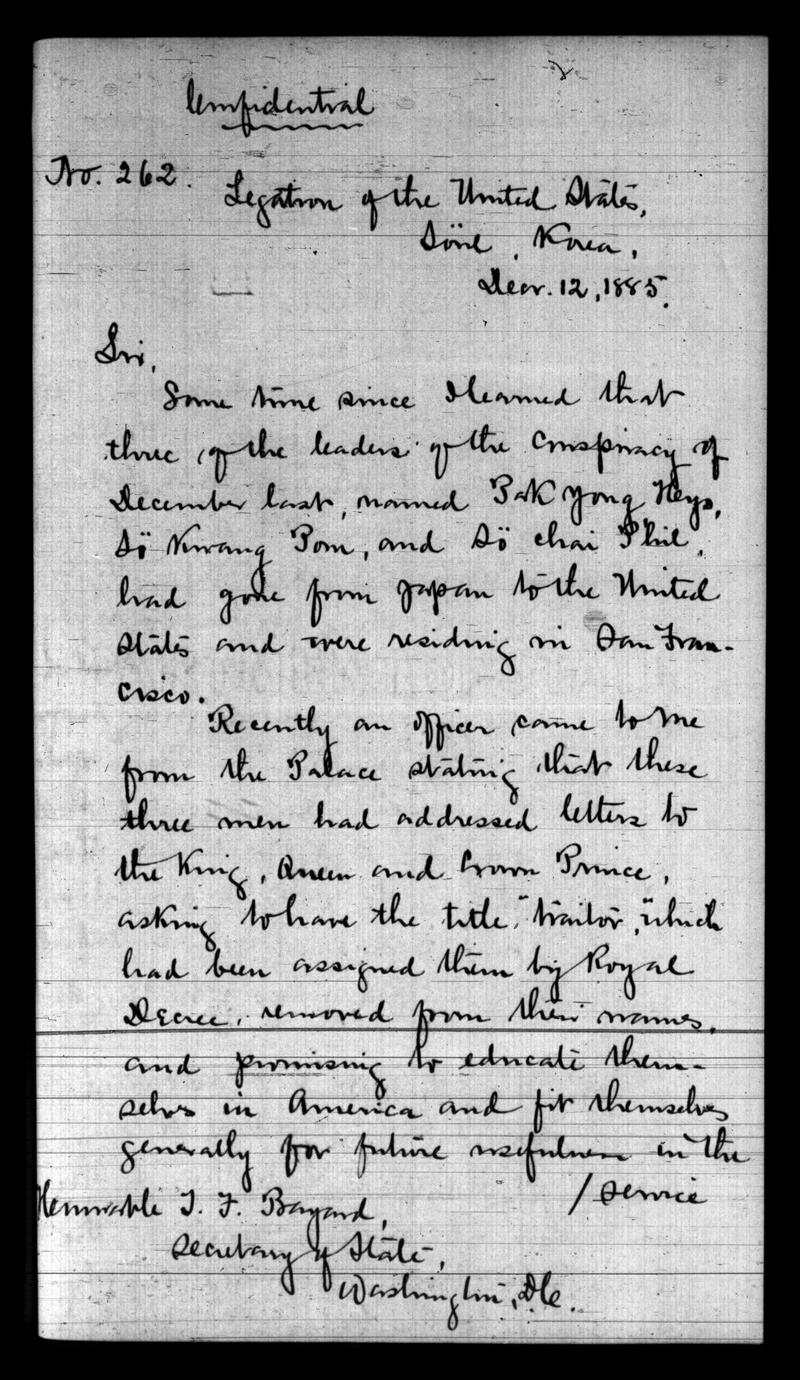 Confidential
No. 262.
Legation of the United States,
Söul, Korea,
Decr. 12, 1885.
Sir,
Some time since I learned that
three of the leaders of the conspiracy of
December last, named Pak Yong Heyo,
Sö Kwang Pom, and Sö Chai Phil,
had gone from Japan to the United
States and were residing in San Fran-
cisco.
Recently an officer came to me
from the Palace stating that these
three men had addressed letters to
the King, Queen and Crown Prince,
asking to have the title, "traitor", which
had been assigned them by Royal
Decree, removed from their names,
and promising to educate them-
selves in America and fit themselves
generally for future usefulness in the
/ service
Honorable T. F. Bayard,
Secretary of State,
Washington, D.C.